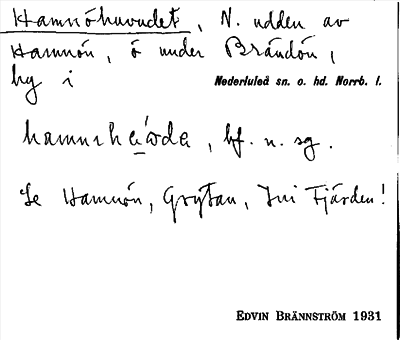 Hamnöhuvudet, N. udden av
Hamnön, ö under Brändön,
by i Nederluleå sn. o. hd. Norrb. l.
, bf. n. sg.
Se Hamnön, Grytan, Inifjärden!
EDVIN BRÄNNSTRÖM 1931